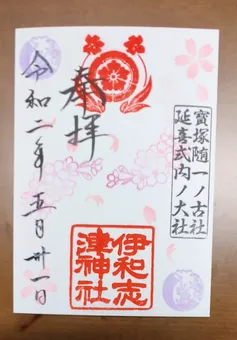 寳塚随一ノ古社
延喜式内ノ大社
奉拝
伊和志
津神社
令和二年五月卅一日